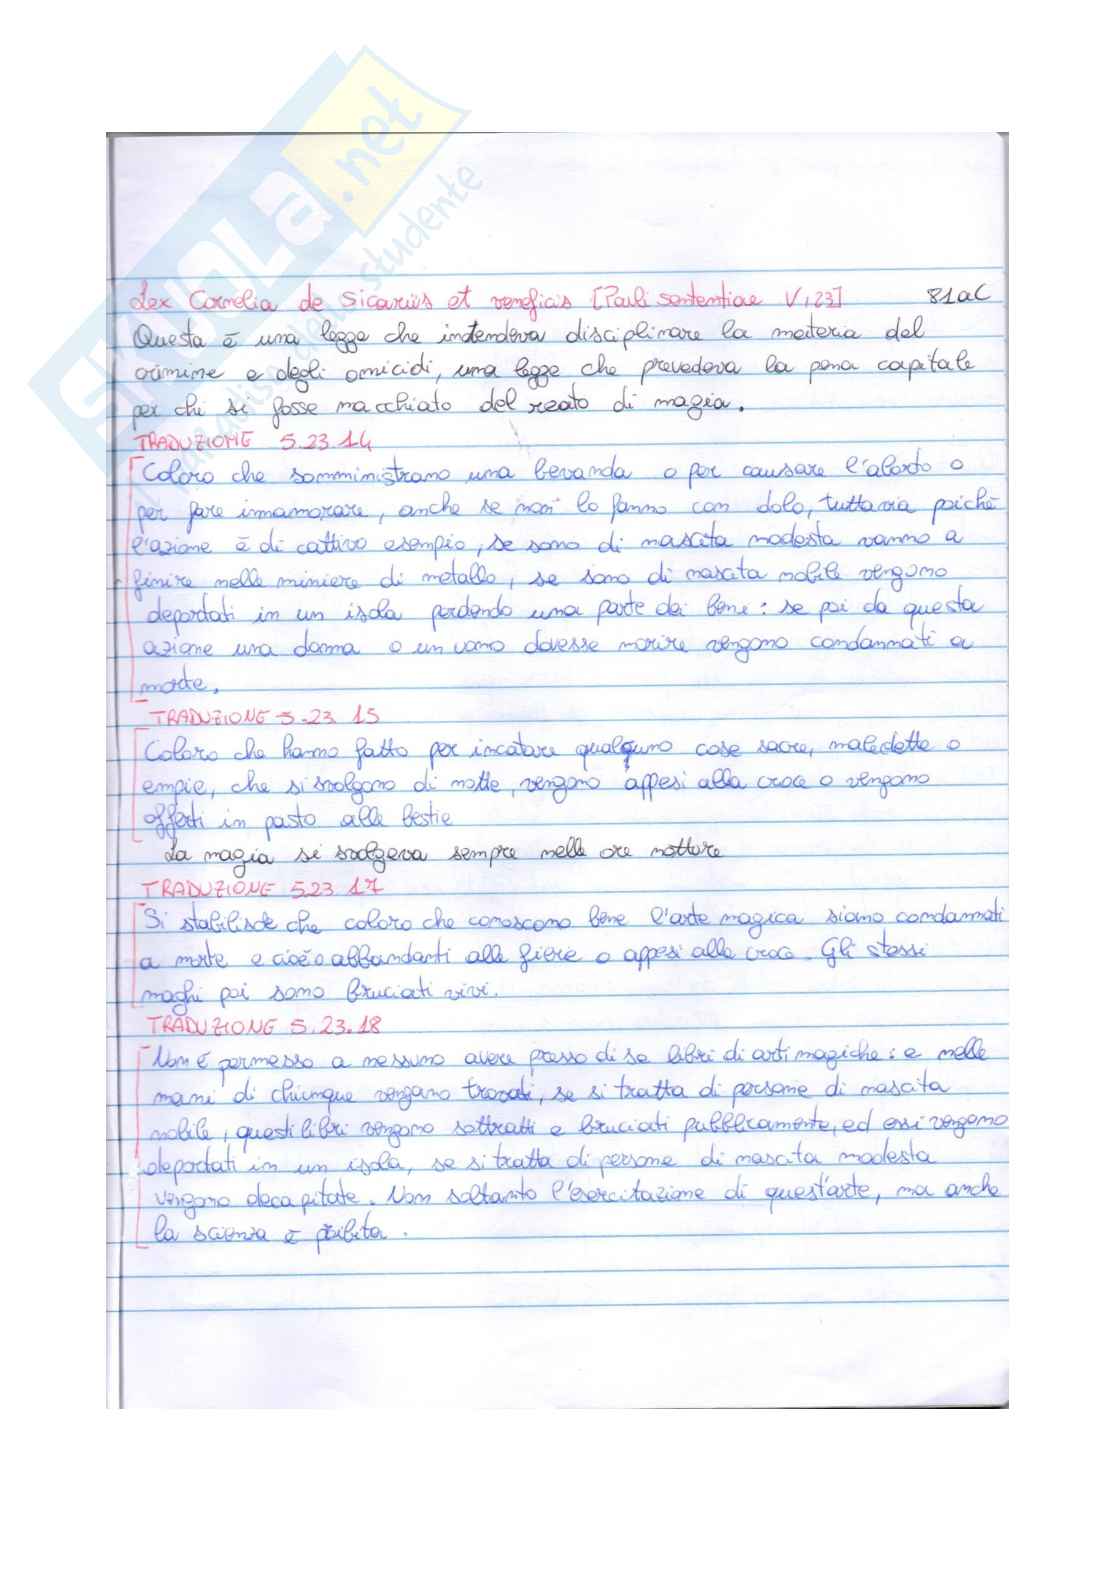 SKUOLA.net
il paradiso dello studente
Lex Cornelia de Sicariis et veneficis [Pauli sententiae V,23] 81aC
Questa è una legge che intendeva disciplinare la materia del
crimine e degli omicidi, una legge che prevedeva la pena capitale
per chi si fosse macchiato del reato di magia.
TRADUZIONE 5.23.14
Coloro che somministrano una bevanda o per causare l'aborto o
per fare innamorare, anche se non lo fanno con dolo, tuttavia poichè
l'azione è di cattivo esempio, se sono di nascita modesta vanno a
finire nelle miniere di metallo, se sono di nascita nobile vengono
deportati in un isola perdendo una parte dei beni: se poi da questa
azione una donna o un uomo dovesse morire vengono condannati a
morte.
TRADUZIONE 5.23 15
Coloro che hanno fatto per incatare qualquno cose sacre, maledette o
empie, che si svolgono di notte, vengono appesi alla croce o vengono
offerti in pasto alle bestie
La magia si svolgeva sempre nelle ore notture
TRADUZIONE 5.23 17
Si stabilisce che coloro che conoscono bene l'arte magica siano condannati
a morte e cioè o abbandanti alle fiere o appesi alla croce. Gli stessi
maghi poi sono bruciati vivi.
TRADUZIONE 5.23.18
Non è permesso a nessuno avere presso di se libri di arti magiche: e nelle
mani di chiunque vengano trovati, se si tratta di persone di nascita
nobile, questi libri vengono sottratti e bruciati pubblicamente, ed essi vengono
deportati in un isola, se si tratta di persone di nascita modesta
vengono decapitate. Non soltanto l'esercitazione di quest'arte, ma anche
la scienza è proibita.